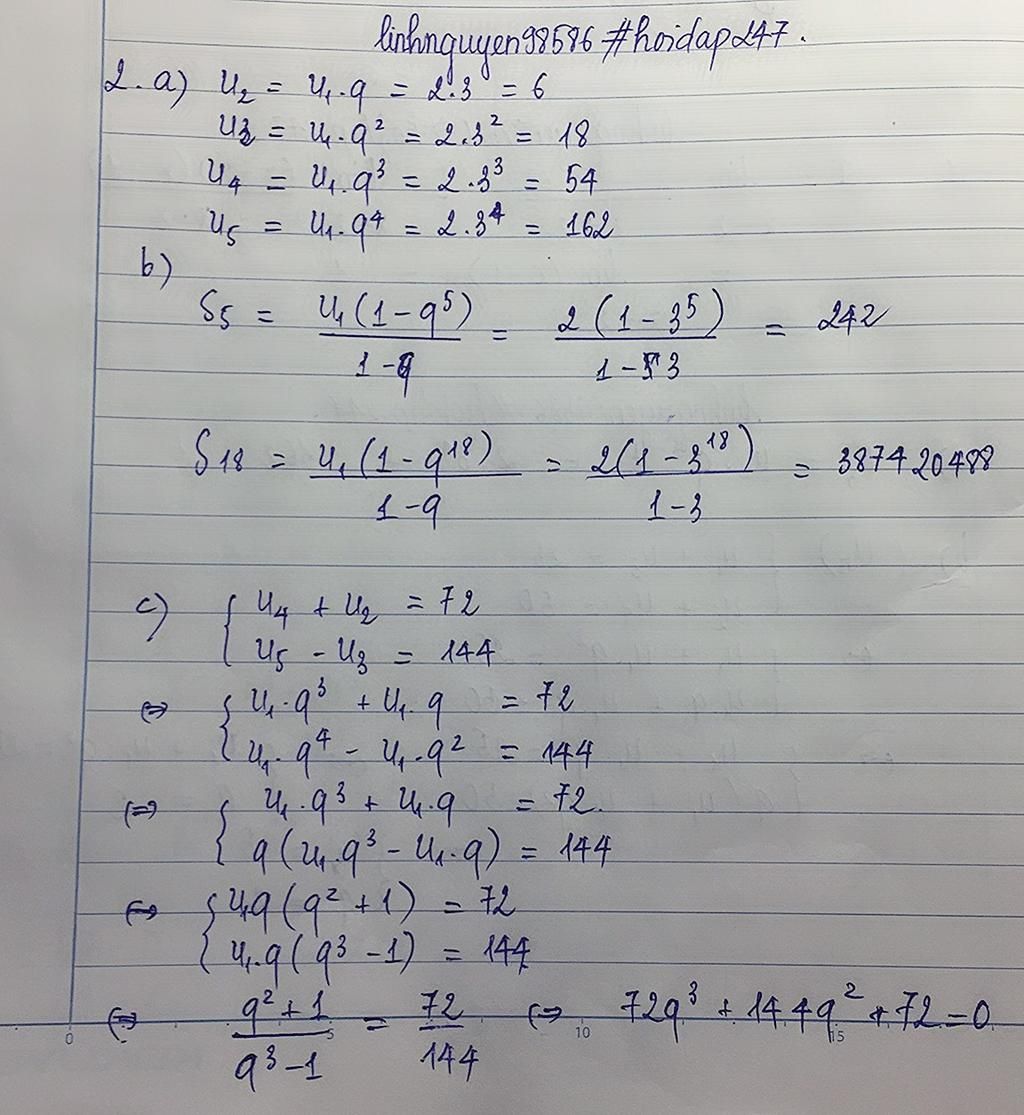 linhnguyen98586 #hoidap247.
2.a) u₂ = u₁.q = 2.3 = 6
u₃ = u₁.q² = 2.3² = 18
u₄ = u₁.q³ = 2.3³ = 54
u₅ = u₁.q⁴ = 2.3⁴ = 162
b)
S₅ = u₁(1-q⁵)/(1-q) = 2(1-3⁵)/(1-3) = 242
S₁₈ = u₁(1-q¹⁸)/(1-q) = 2(1-3¹⁸)/(1-3) = 387420488
c) { u₄ + u₂ = 72
u₅ - u₃ = 144
⇔ { u₁.q³ + u₁.q = 72
u₁.q⁴ - u₁.q² = 144
⇔ { u₁.q³ + u₁.q = 72.
q(u₁.q³ - u₁.q) = 144
⇔ { u₁q(q² + 1) = 72
u₁.q(q³ - 1) = 144
⇔ (q² + 1)/(q³ - 1) = 72/144 ⇔ 72q³ + 144q² + 72 = 0
0 5 10 15